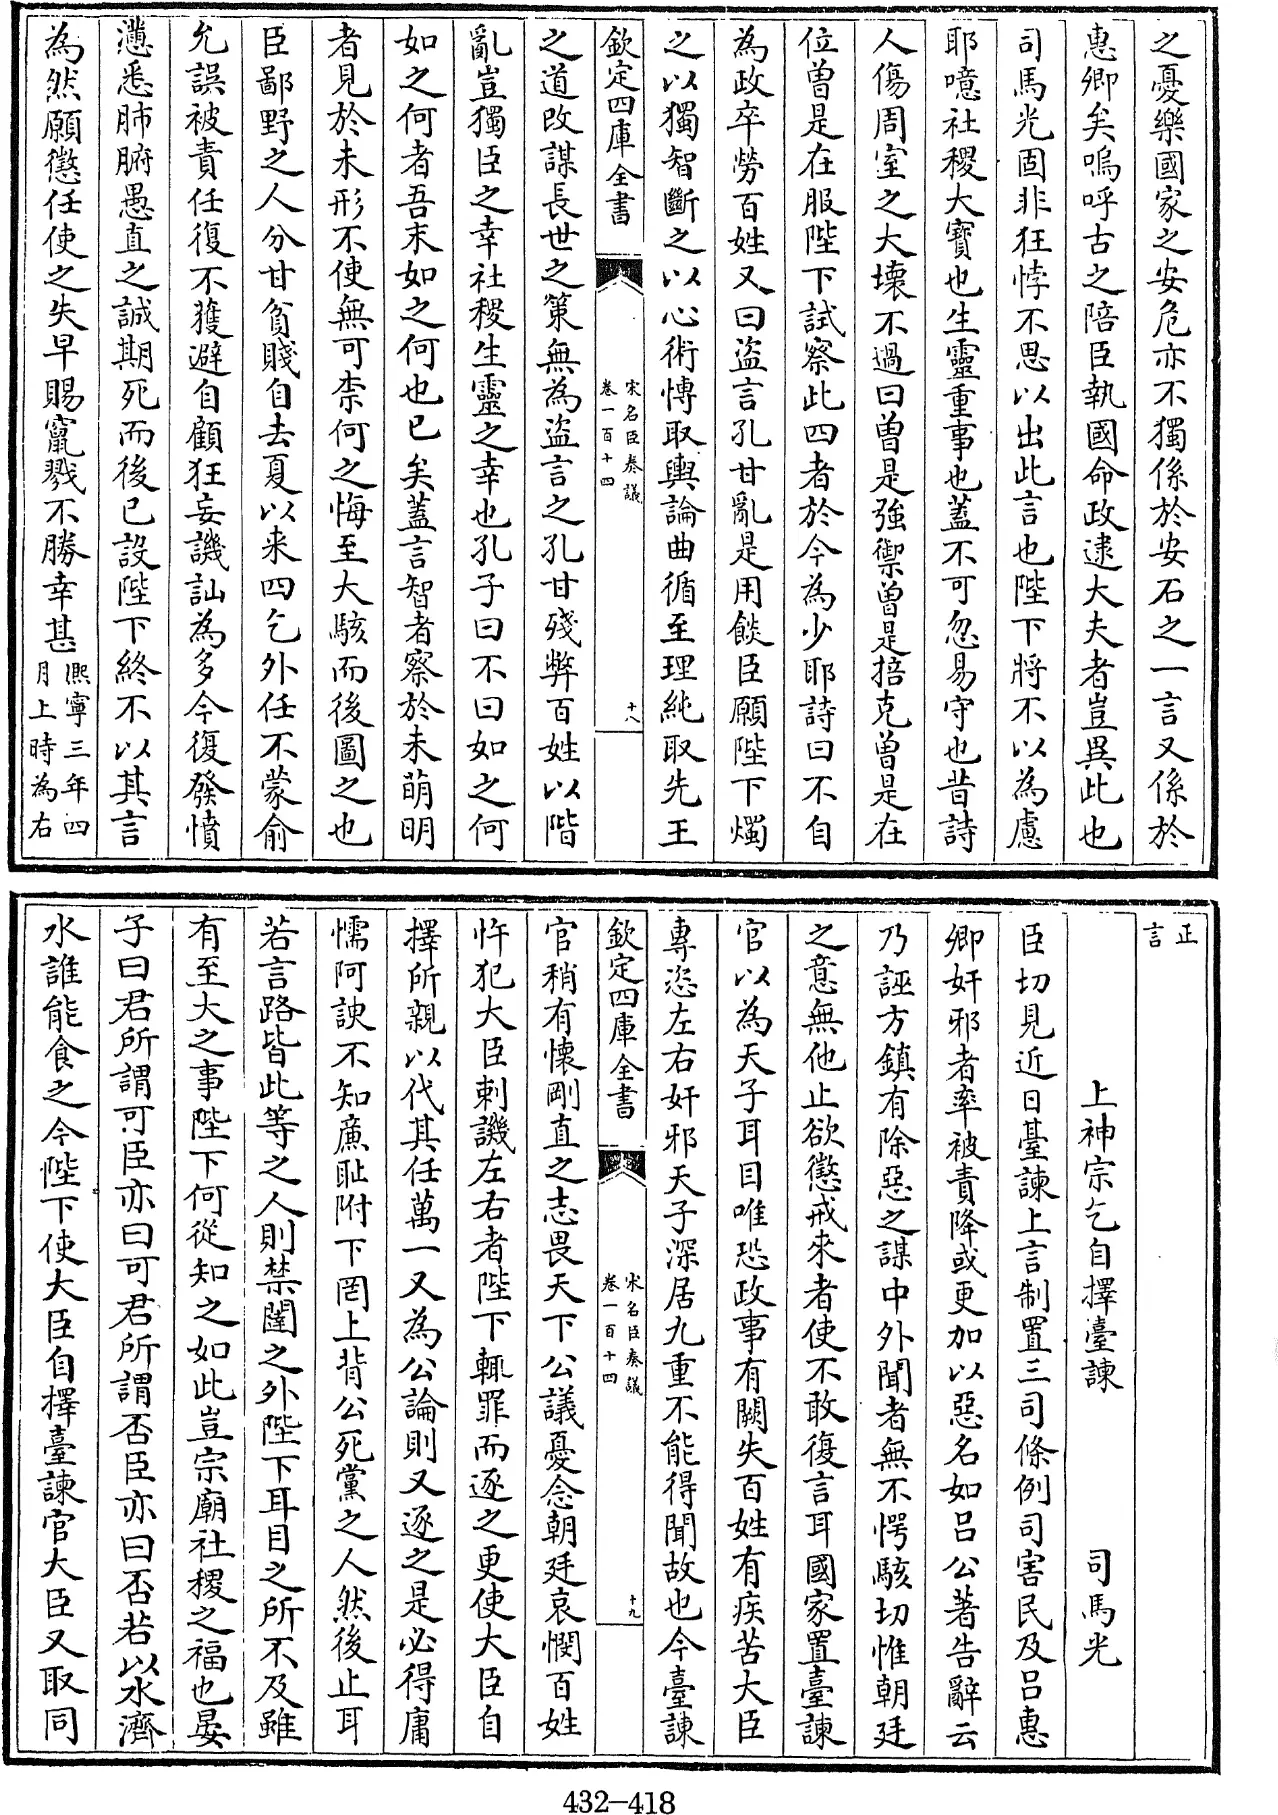 之憂樂國家之安危亦不獨係於安石之一言又係於
惠卿矣嗚呼古之陪臣執國命政逮大夫者豈異此也
司馬光固非狂悖不思以出此言也陛下將不以為慮
耶噫社稷大寶也生靈重事也蓋不可忽易守也昔詩
人傷周室之大壞不過曰曾是強禦曾是掊克曾是在
位曾是在服陛下試察此四者於今為少耶詩曰不自
為政卒勞百姓又曰盜言孔甘亂是用餤臣願陛下燭
之以獨智斷之以心術博取輿論曲循至理純取先王
欽定四庫全書
宋名臣奏議
卷一百十四
十八
之道改謀長世之策無為盜言之孔甘殘弊百姓以階
亂豈獨臣之幸社稷生靈之幸也孔子曰不曰如之何
如之何者吾末如之何也已矣蓋言智者察於未萌明
者見於未形不使無可柰何之悔至大駭而後圖之也
臣鄙野之人分甘貧賤自去夏以来四乞外任不蒙俞
允誤被責任復不獲避自顧狂妄譏訕為多今復發憤
懣悉肺腑愚直之誠期死而後已設陛下終不以其言
為然願懲任使之失早賜竄戮不勝幸甚
熙寧三年四
月上時為右
正
言
上神宗乞自擇臺諫 司馬光
臣切見近日臺諫上言制置三司條例司害民及呂惠
卿奸邪者率被責降或更加以惡名如呂公著告辭云
乃誣方鎮有除惡之謀中外聞者無不愕駭切惟朝廷
之意無他止欲懲戒來者使不敢復言耳國家置臺諫
官以為天子耳目唯恐政事有闕失百姓有疾苦大臣
專恣左右奸邪天子深居九重不能得聞故也今臺諫
欽定四庫全書
宋名臣奏議
卷一百十四
十九
官稍有懷剛直之志畏天下公議憂念朝廷哀憫百姓
忤犯大臣刺譏左右者陛下輒罪而逐之更使大臣自
擇所親以代其任萬一又為公論則又逐之是必得庸
懦阿諛不知廉耻附下罔上背公死黨之人然後止耳
若言路皆此等之人則禁闥之外陛下耳目之所不及雖
有至大之事陛下何從知之如此豈宗廟社稷之福也晏
子曰君所謂可臣亦曰可君所謂否臣亦曰否若以水濟
水誰能食之今陛下使大臣自擇臺諫官大臣又取同
432-418